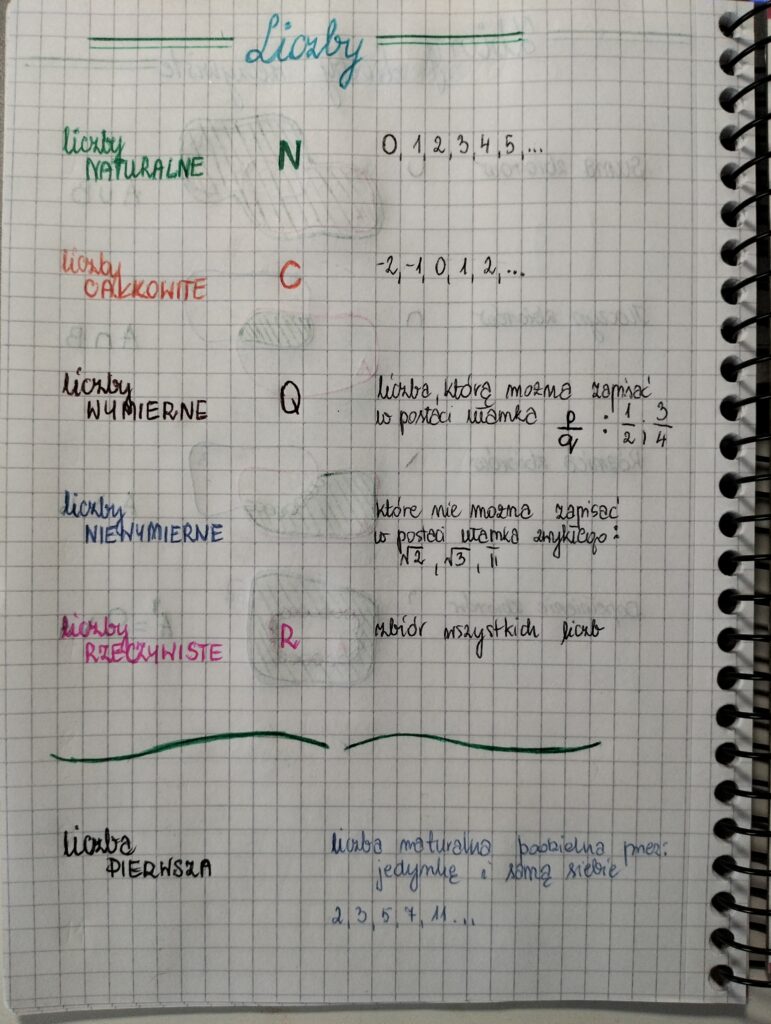 Liczby
liczby
NATURALNE N 0, 1, 2, 3, 4, 5, ...
liczby
CAŁKOWITE C -2, -1, 0, 1, 2, ...
liczby
WYMIERNE Q liczba, którą można zapisać
w postaci ułamka p/q : 1/2 ; 3/4
liczby
NIEWYMIERNE które nie można zapisać
w postaci ułamka zwykłego :
√2 , √3 , π
liczby
RZECZYWISTE R zbiór wszystkich liczb
liczba
PIERWSZA liczba naturalna podzielna przez:
jedynkę i samą siebie
2, 3, 5, 7, 11 ...